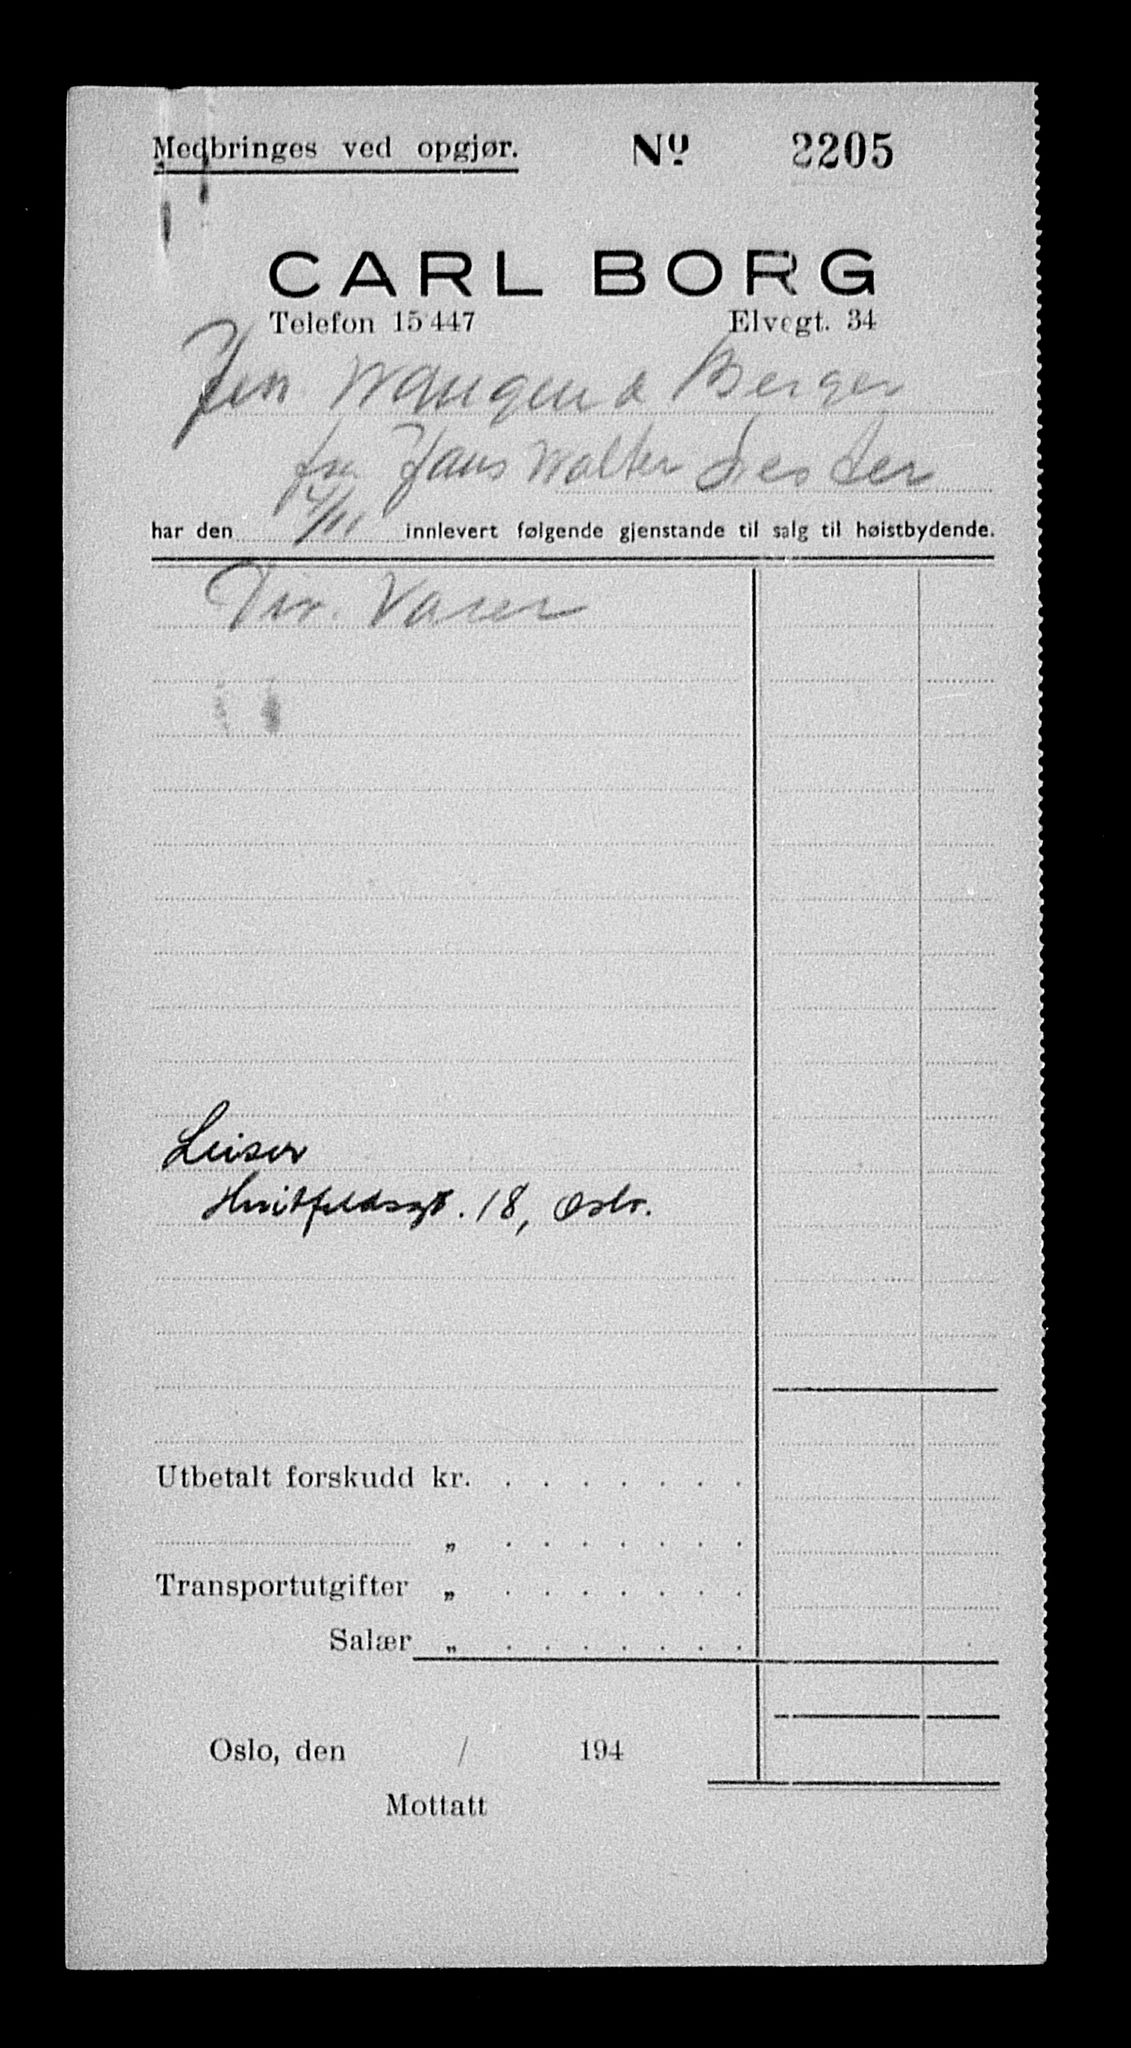 Medbringes ved opgjør. Nº 2205
CARL BORG
Telefon 15 447 Elvegt. 34
Wangen & Berger
fra Hans Walter
har den 4/11 innlevert følgende gjenstande til salg til høistbydende.
Div. Varer
Leiser
Huitfeldsgt. 18, Oslo.
Utbetalt forskudd kr. . . . . . . .
„ . . . . . . .
Transportutgifter „ . . . . . . .
Salær „ . . . . . . .
Oslo, den / 194
Mottatt